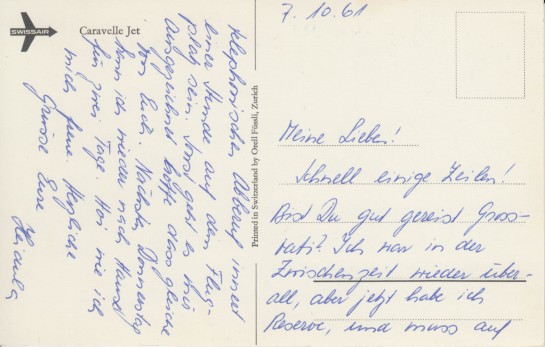 SWISSAIR
Caravelle Jet
7. 10. 61
Meine Lieben!
Schnell einige Zeilen!
Bist Du gut gereist Gross-
vati? Ich war in der
Zwischenzeit wieder über-
all, aber jetzt habe ich
Reserve, und muss auf
telephonischen Abruf innert
einer Stunde auf dem Flug-
platz sein. Sonst geht es mir
ausgezeichnet hoffe dass gleiche
von Euch. Nächsten Donnerstag
kann ich wieder nach Hause
für zwei Tage. Hoi wie ich
mich freue. Herzliche
Grüsse Eure
Printed in Switzerland by Orell Füssli, Zurich